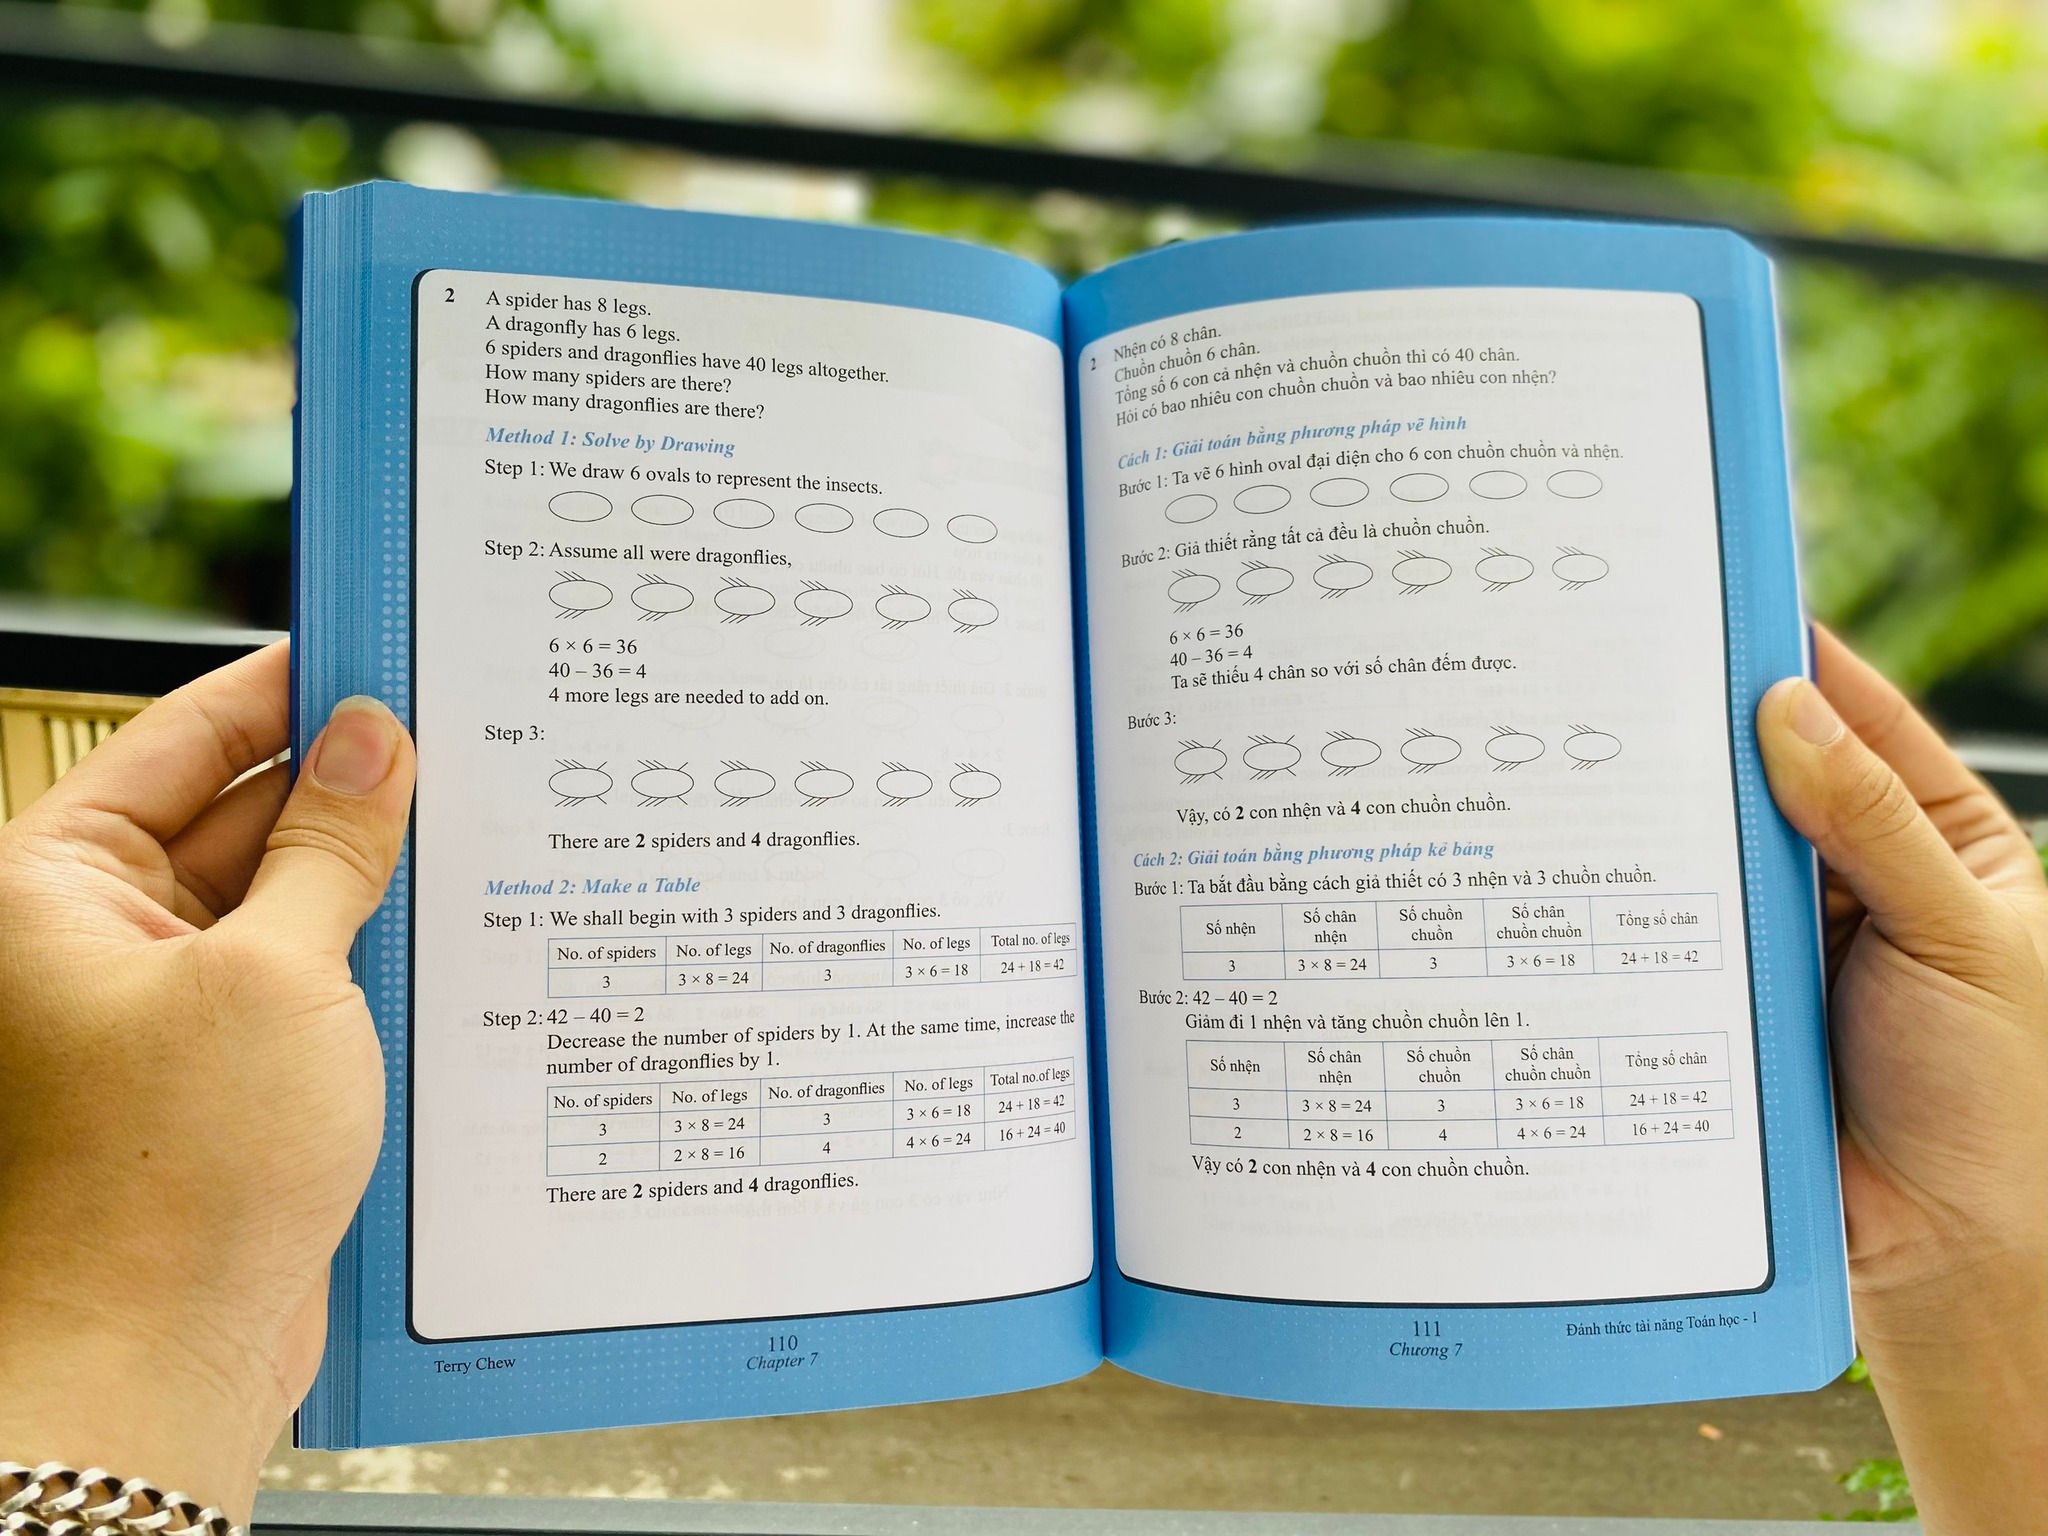 2 A spider has 8 legs.
A dragonfly has 6 legs.
6 spiders and dragonflies have 40 legs altogether.
How many spiders are there?
How many dragonflies are there?
Method 1: Solve by Drawing
Step 1: We draw 6 ovals to represent the insects.
Step 2: Assume all were dragonflies,
6 × 6 = 36
40 – 36 = 4
4 more legs are needed to add on.
Step 3:
There are 2 spiders and 4 dragonflies.
Method 2: Make a Table
Step 1: We shall begin with 3 spiders and 3 dragonflies.
No. of spiders No. of legs No. of dragonflies No. of legs Total no. of legs
3 3 × 8 = 24 3 3 × 6 = 18 24 + 18 = 42
Step 2: 42 – 40 = 2
Decrease the number of spiders by 1. At the same time, increase the
number of dragonflies by 1.
No. of spiders No. of legs No. of dragonflies No. of legs Total no.of legs
3 3 × 8 = 24 3 3 × 6 = 18 24 + 18 = 42
2 2 × 8 = 16 4 4 × 6 = 24 16 + 24 = 40
There are 2 spiders and 4 dragonflies.
Terry Chew
110
Chapter 7
2 Nhện có 8 chân.
Chuồn chuồn 6 chân.
Tổng số 6 con cả nhện và chuồn chuồn thì có 40 chân.
Hỏi có bao nhiêu con chuồn chuồn và bao nhiêu con nhện?
Cách 1: Giải toán bằng phương pháp vẽ hình
Bước 1: Ta vẽ 6 hình oval đại diện cho 6 con chuồn chuồn và nhện.
Bước 2: Giả thiết rằng tất cả đều là chuồn chuồn.
6 × 6 = 36
40 – 36 = 4
Ta sẽ thiếu 4 chân so với số chân đếm được.
Bước 3:
Vậy, có 2 con nhện và 4 con chuồn chuồn.
Cách 2: Giải toán bằng phương pháp kẻ bảng
Bước 1: Ta bắt đầu bằng cách giả thiết có 3 nhện và 3 chuồn chuồn.
Số nhện Số chân nhện Số chuồn chuồn Số chân chuồn chuồn Tổng số chân
3 3 × 8 = 24 3 3 × 6 = 18 24 + 18 = 42
Bước 2: 42 – 40 = 2
Giảm đi 1 nhện và tăng chuồn chuồn lên 1.
Số nhện Số chân nhện Số chuồn chuồn Số chân chuồn chuồn Tổng số chân
3 3 × 8 = 24 3 3 × 6 = 18 24 + 18 = 42
2 2 × 8 = 16 4 4 × 6 = 24 16 + 24 = 40
Vậy có 2 con nhện và 4 con chuồn chuồn.
111
Chương 7
Đánh thức tài năng Toán học - 1